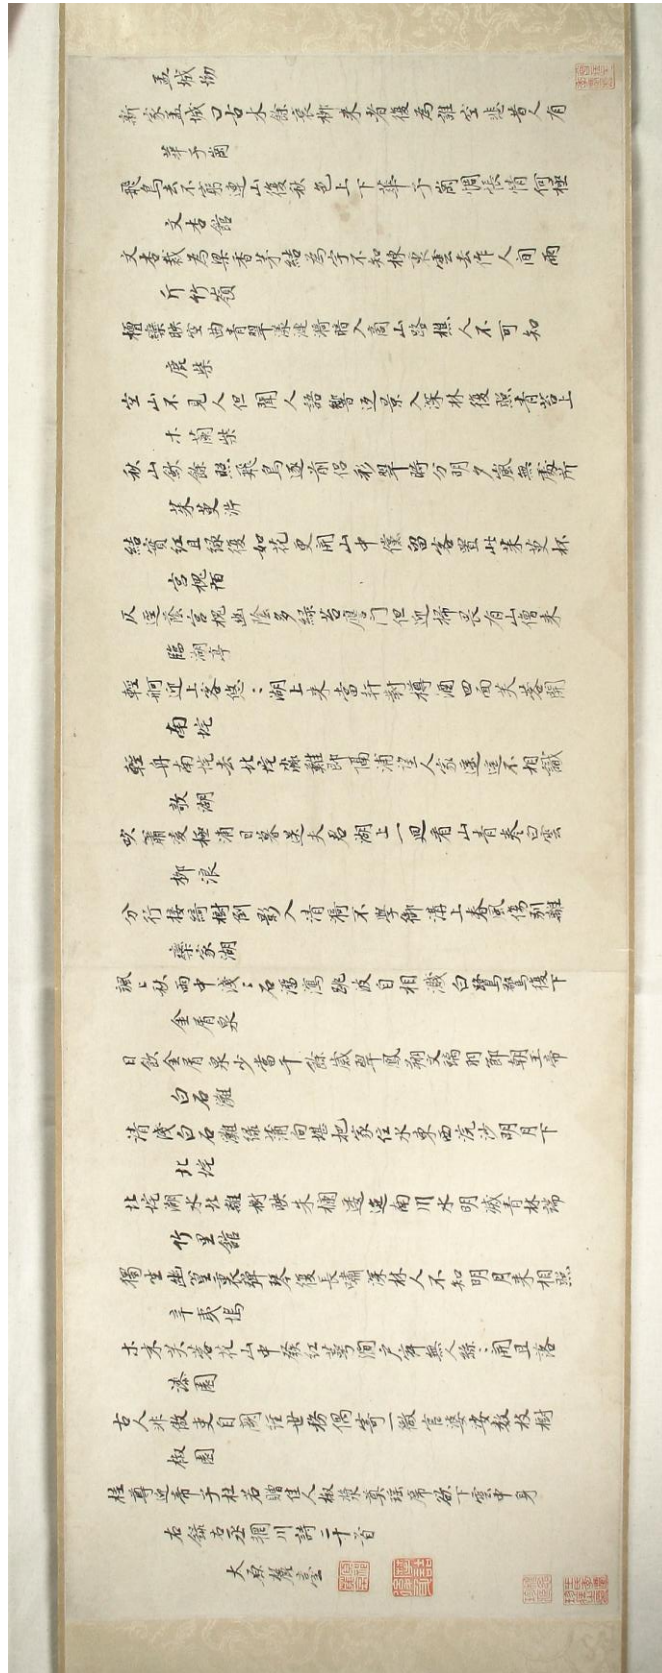 孟城坳
新家孟城口古木餘衰柳來者復為誰空悲昔人有
華子崗
飛鳥去不窮連山復秋色上下華子崗惆悵情何極
文杏館
文杏裁為梁香茅結為宇不知棟裏雲去作人間雨
斤竹嶺
檀欒映空曲青翠漾漣漪暗入商山路樵人不可知
鹿柴
空山不見人但聞人語響返景入深林復照青苔上
木蘭柴
秋山斂餘照飛鳥逐前侶彩翠時分明夕嵐無處所
茱萸沜
結實紅且綠復如花更開山中儻留客置此茱萸杯
宮槐陌
仄逕蔭宮槐幽陰多綠苔應门但迎掃畏有山僧來
臨湖亭
輕舸迎上客悠〻湖上來當軒對樽酒四面芙蓉開
南垞
輕舟南垞去北垞淼難即隔浦望人家遙遙不相識
欹湖
吹簫凌極浦日暮送夫君湖上一迴看山青卷白雲
柳浪
分行接綺樹倒影入清漪不學御溝上春風傷別離
欒家湖
颯〻秋雨中淺〻石溜瀉跳波自相濺白鷺驚復下
金屑泉
日飲金屑泉少當千餘歲翠鳳翔文螭羽節朝玉帝
白石灘
清淺白石灘綠蒲向堪把家住水東西浣沙明月下
北垞
北垞湖水北雜樹映朱欄逶迤南川水明滅青林端
竹里館
獨坐幽篁裏彈琴復長嘯深林人不知明月來相照
辛夷塢
木末芙蓉花山中發紅萼澗戶寂無人紛〻開且落
漆園
古人非傲吏自闕經世務偶寄一微官婆娑數枝樹
椒園
桂尊迎帝子杜若贈佳人椒漿奠瑤席欲下雲中君
右錄右丞輞川詩二十首
太原麓臺